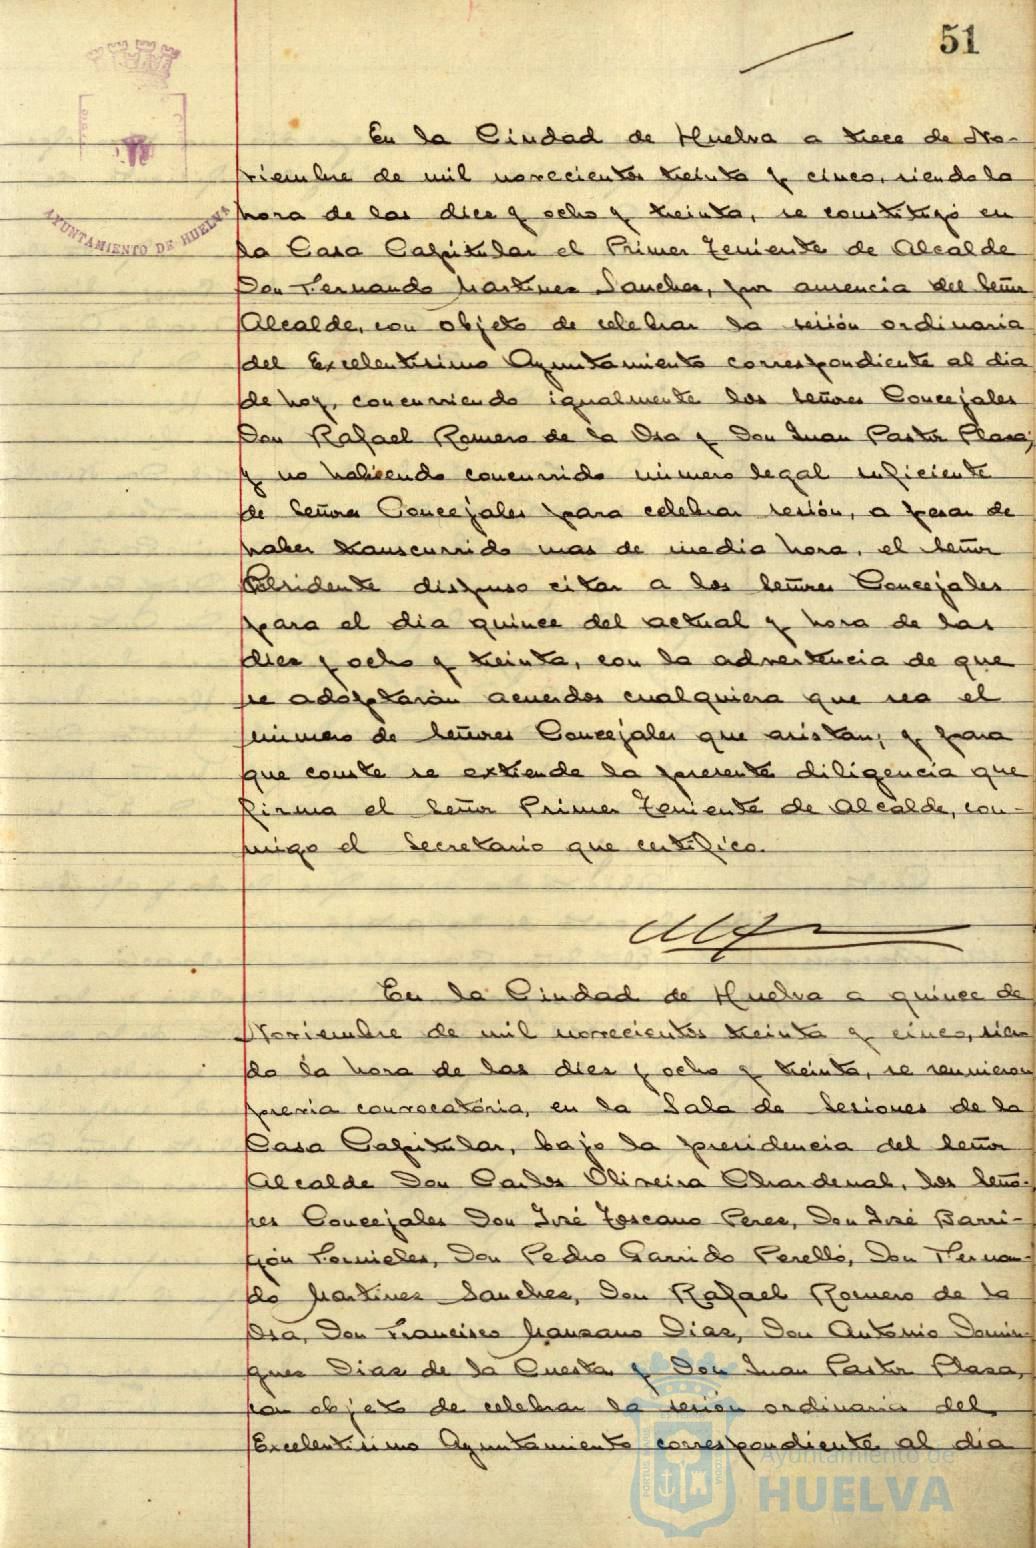 51
AYUNTAMIENTO DE HUELVA
En la Ciudad de Huelva a trece de No-
viembre de mil novecientos treinta y cinco, siendo la
hora de las diez y ocho y treinta, se constituyó en
la Casa Capitular el Primer Teniente de Alcalde
Don Fernando Martinez Sanchez, por ausencia del Señor
Alcalde, con objeto de celebrar la sesión ordinaria
del Excelentisimo Ayuntamiento correspondiente al dia
de hoy, concurriendo igualmente los Señores Concejales
Don Rafael Romero de la Osa y Don Juan Pastor Plaza;
y no habiendo concurrido número legal suficiente
de Señores Concejales para celebrar sesión, a pesar de
haber transcurrido mas de media hora, el Señor
Presidente dispuso citar a los Señores Concejales
para el dia quince del actual y hora de las
diez y ocho y treinta, con la advertencia de que
se adoptarán acuerdos cualquiera que sea el
número de Señores Concejales que asistan; y para
que conste se extiende la presente diligencia que
firma el Señor Primer Teniente de Alcalde, con-
migo el Secretario que certifico.
En la Ciudad de Huelva a quince de
Noviembre de mil novecientos treinta y cinco, sien
do la hora de las diez y ocho y treinta, se reunieron
previa convocatoria, en la Sala de Sesiones de la
Casa Capitular, bajo la presidencia del Señor
Alcalde Don Carlos Oliveira Chardenal, los Seño-
res Concejales Don José Toscano Perez, Don José Barri-
gón Fornieles, Don Pedro Garrido Perelló, Don Fernan-
do Martinez Sanchez, Don Rafael Romero de la
Osa, Don Francisco Manzano Diaz, Don Antonio Domin-
guez Diaz de la Cuesta y Don Juan Pastor Plaza,
con objeto de celebrar la sesión ordinaria del
Excelentisimo Ayuntamiento correspondiente al dia
Ayuntamiento de
HUELVA